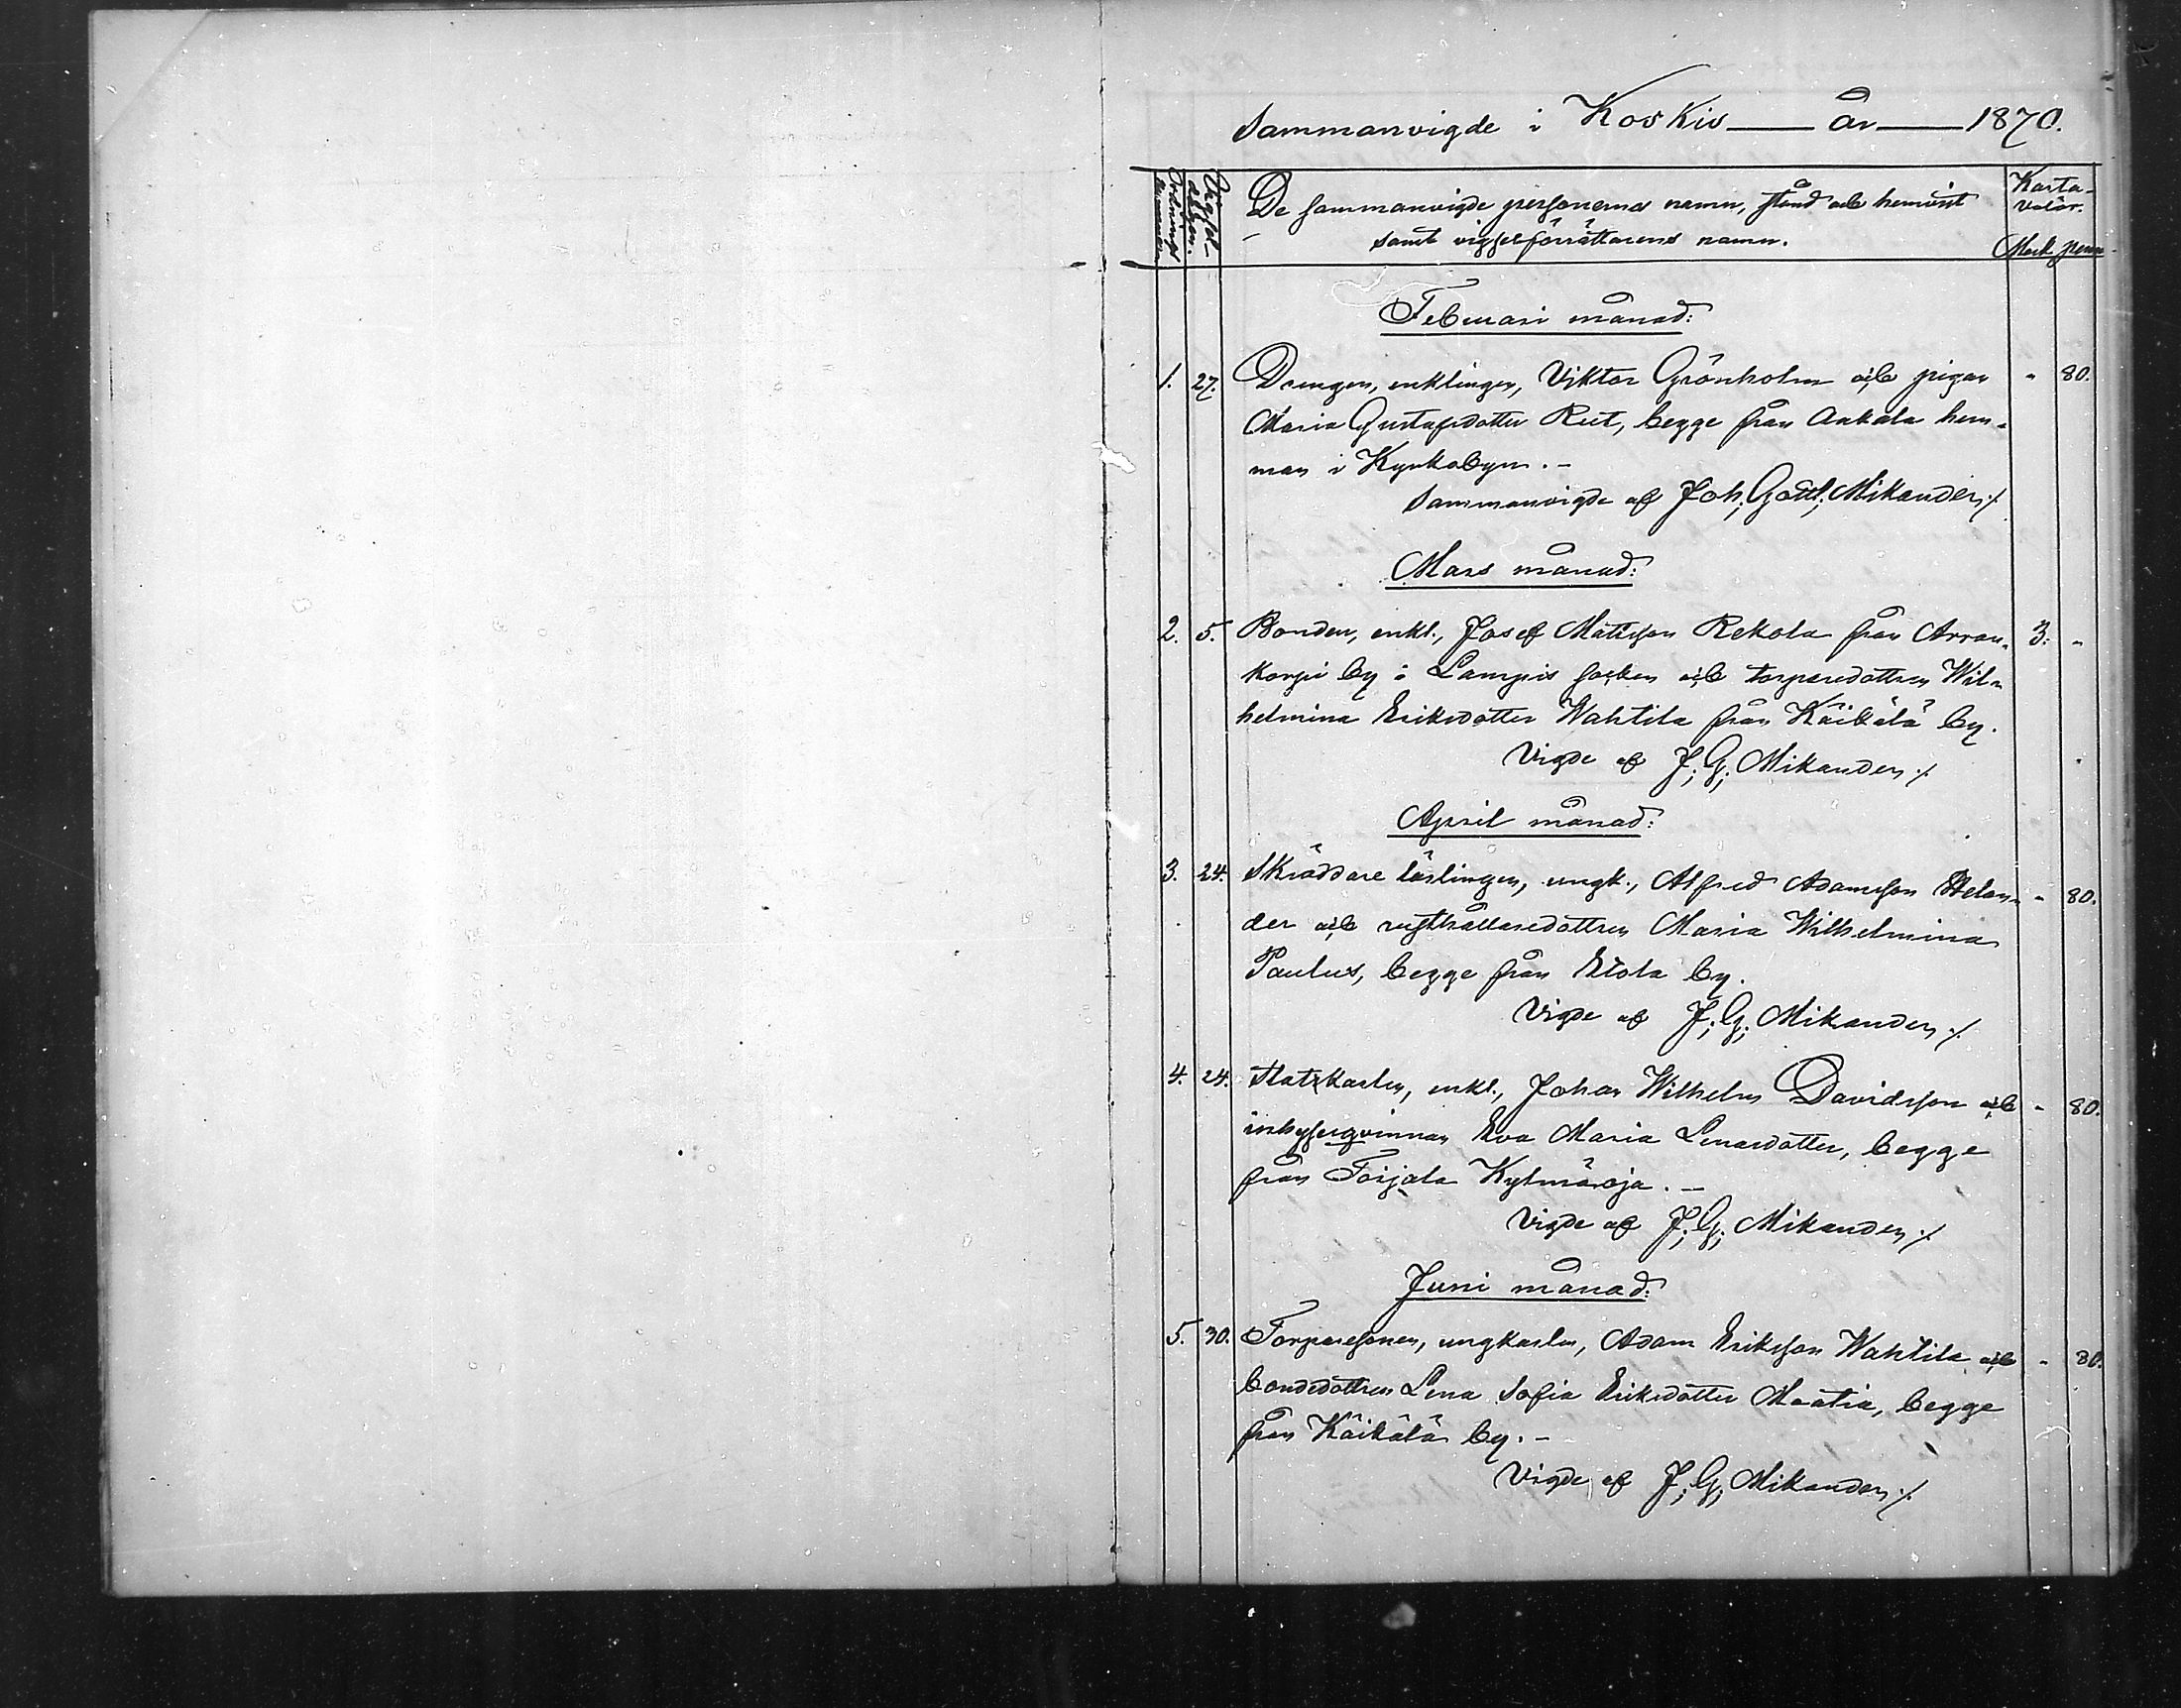 Sammanvigde i Koskis år 1870.
Ordnings nummer.
Vigseldagen.
De sammanvigde personernas namn, stånd och hemvist
samt vigselförrättarens namn.
Karta-
valör.
Mark penni
Februari månad:
1. 27. Drengen, enklingen, Viktor Grönholm och pigan " 80.
Maria Gustafsdotter Reet, begge från Ankala hem-
man i Kyrkobyn. -
Sammanvigde af Joh; Gottl; Mikander ./.
Mars månad:
2. 5. Bonden, enkl., Josef Matsson Rekola från Arran- 3: "
korpi by i Lampis socken och torparedottren Wil-
helmina Eriksdotter Wahtila från Käikälä by.
Vigde af J; G; Mikander ./.
April månad:
3. 24. Skräddare lärlingen, ungk., Alfred Adamsson Helan- " 80.
der och rusthållaredottren Maria Wilhelmina
Paulus, begge från Etola by.
Vigde af J; G; Mikander ./.
4. 24. Statkarlen, enkl., Johan Wilhelm Davidsson och " 80.
inhysesqvinnan Eva Maria Lenasdotter, begge
från Toijala Kylmäoja. -
Vigde af J; G; Mikander ./.
Juni månad:
5. 30. Torparesonen, ungkarlen, Adam Eriksson Wahtila och " 80.
bondedottren Lena Sofia Eriksdotter Maatia, begge
från Käikälä by. -
Vigde af J; G; Mikander ./.